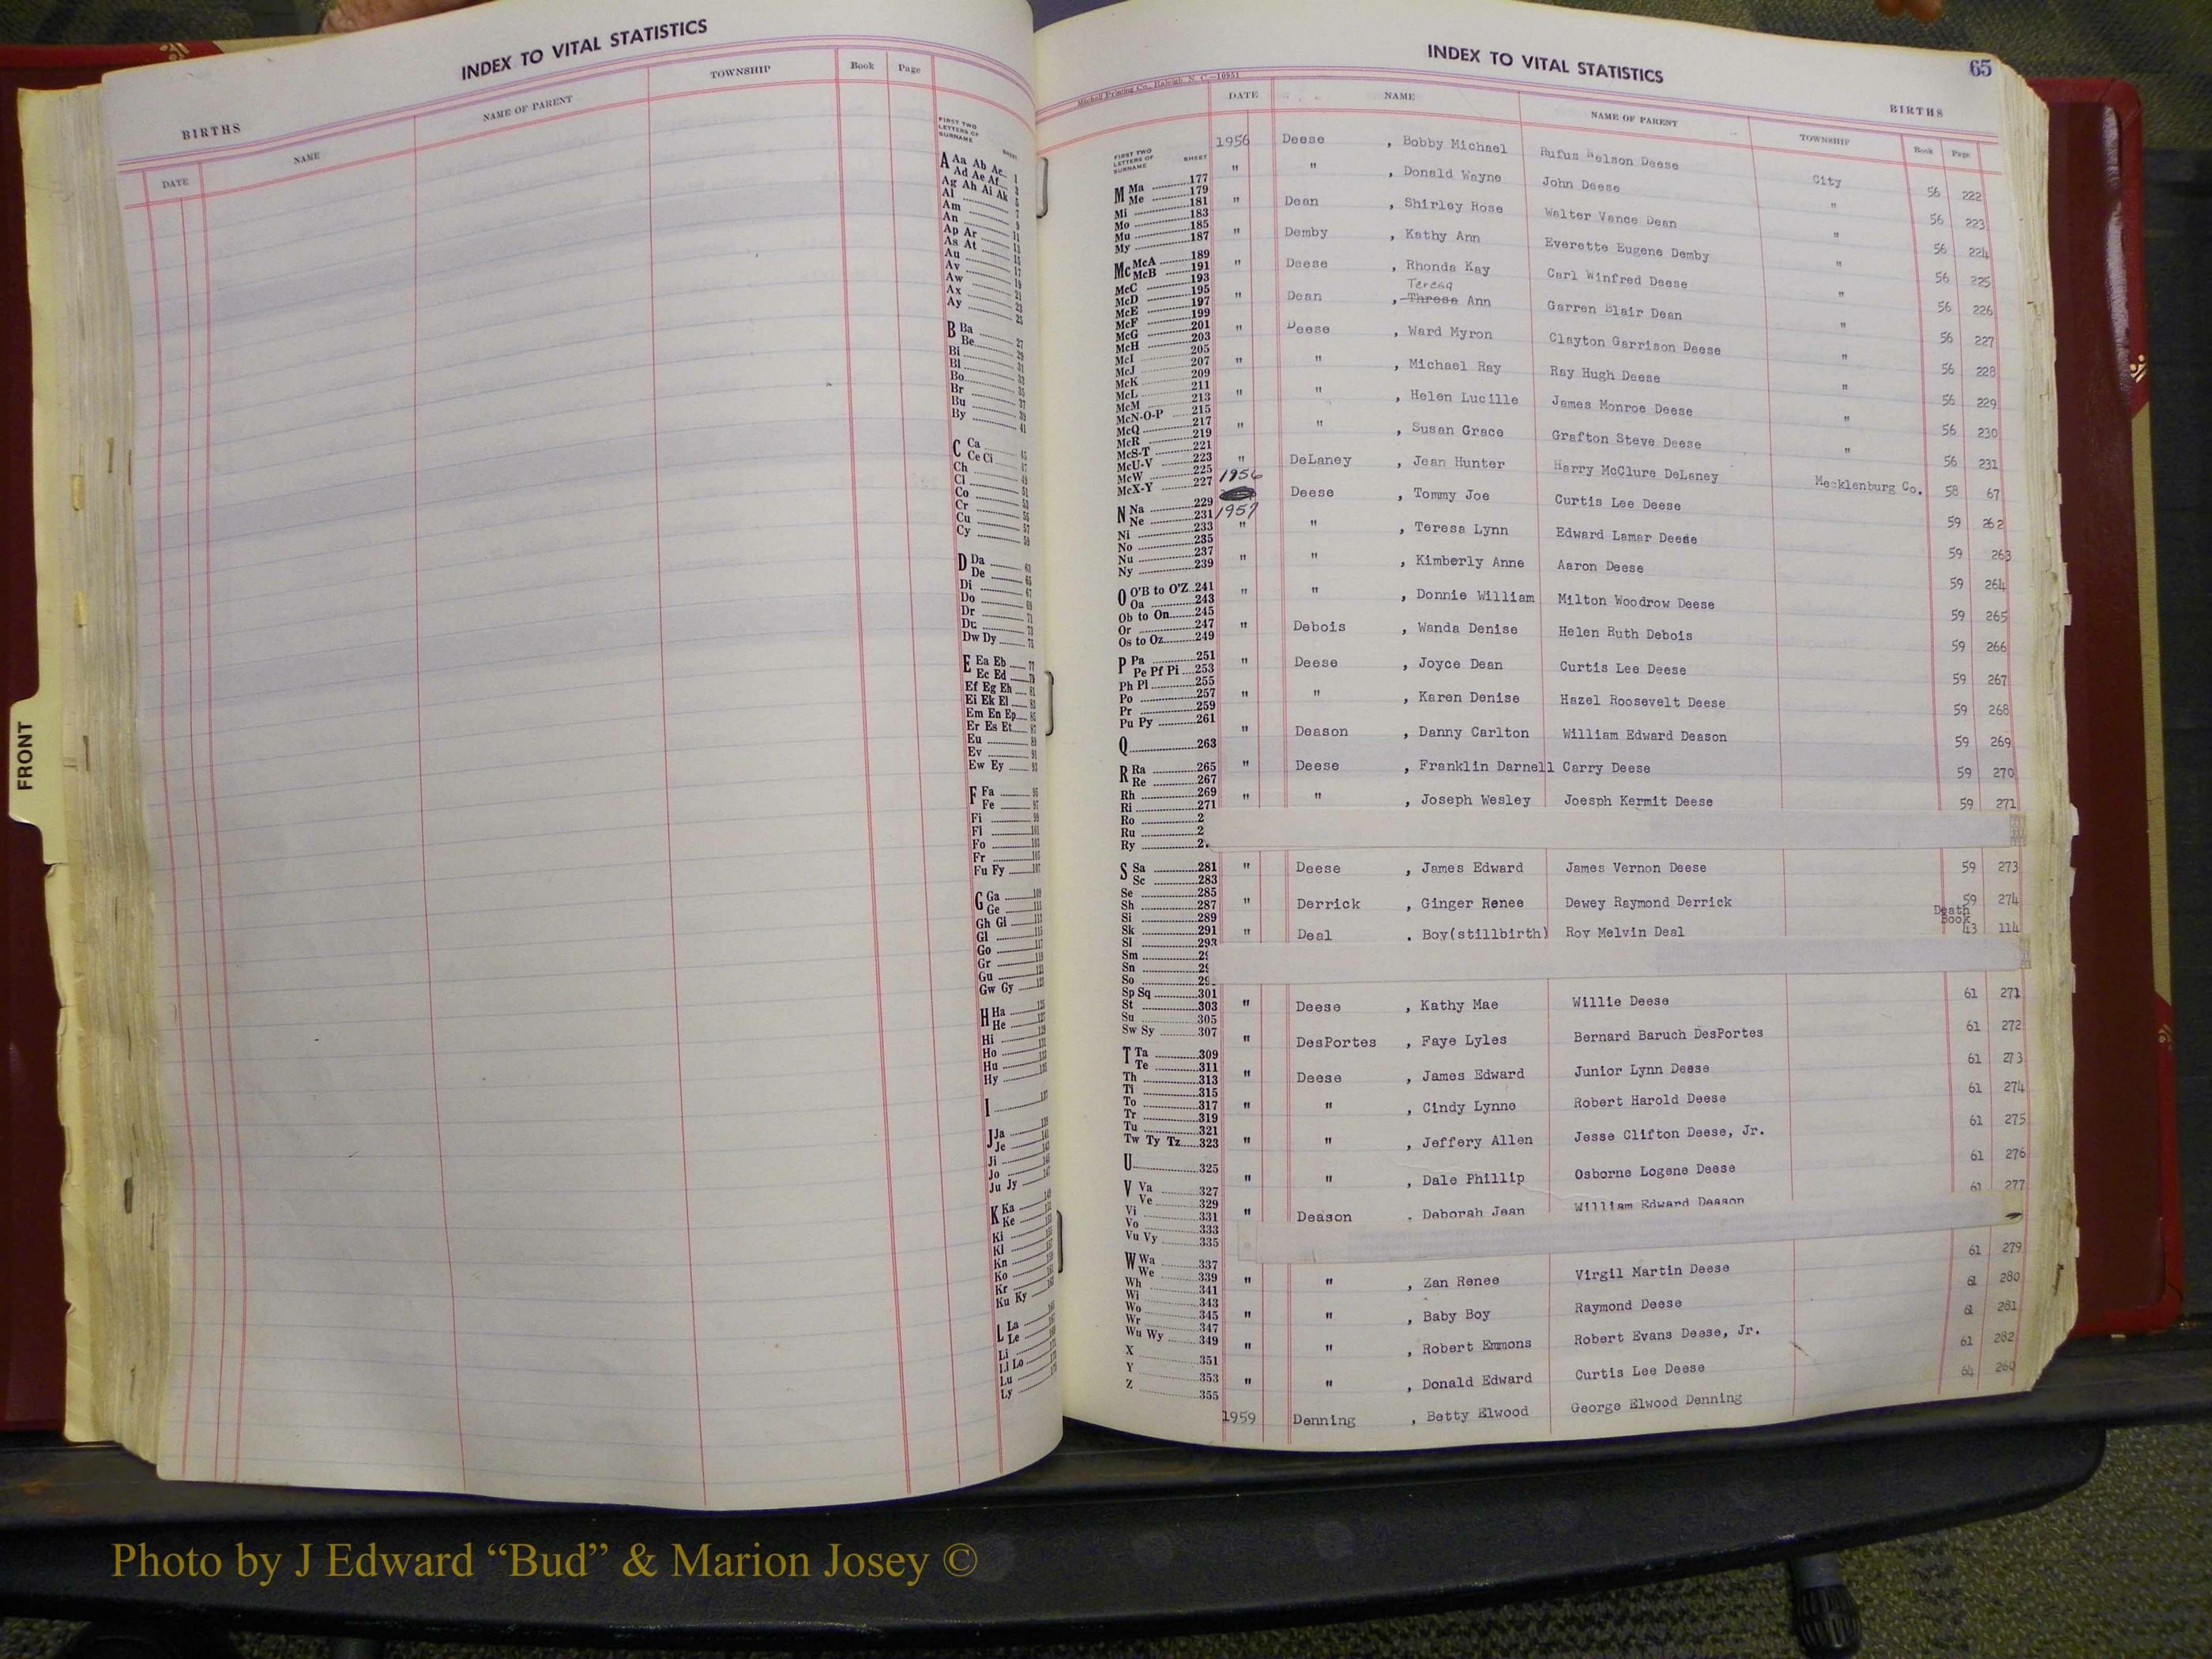 INDEX TO VITAL STATISTICS
BIRTHS
DATE NAME NAME OF PARENT TOWNSHIP Book Page
FIRST TWO LETTERS OF SURNAME SHEET
A Aa Ab Ac 1
Ad Ae Af 3
Ag Ah Ai Ak 5
Al 7
Am 9
An 11
Ap Ar 13
As At 15
Au 17
Av 19
Aw 21
Ax 23
Ay 25
B Ba 27
Be 29
Bi 31
Bl 33
Bo 35
Br 37
Bu 39
By 41
C Ca 45
Ce Ci 47
Ch 49
Cl 51
Co 53
Cr 55
Cu 57
Cy 59
D Da 63
De 65
Di 67
Do 69
Dr 71
Du 73
Dw Dy 75
E Ea Eb 77
Ec Ed 79
Ef Eg Eh 81
Ei Ek El 83
Em En Ep 85
Er Es Et 87
Eu 89
Ev 91
Ew Ey 93
F Fa 95
Fe 97
Fi 99
Fl 101
Fo 103
Fr 105
Fu Fy 107
G Ga 109
Ge 111
Gh Gi 113
Gl 115
Go 117
Gr 119
Gu 121
Gw Gy 123
H Ha 125
He 127
Hi 129
Ho 131
Hu 133
Hy 135
I 137
J Ja
Je
Ji
Jo
Ju Jy
K Ka
Ke
Ki
Kl
Kn
Ko
Kr
Ku Ky
L La
Le
Li
Ll Lo
Lu
Ly
FRONT
INDEX TO VITAL STATISTICS 65
Mitchell Printing Co., Raleigh, N. C.—10951
BIRTHS
DATE NAME NAME OF PARENT TOWNSHIP Book Page
FIRST TWO LETTERS OF SURNAME SHEET
M Ma 177
Me 179
Mi 181
Mo 183
Mu 185
My 187
Mc McA 189
McB 191
McC 193
McD 195
McE 197
McF 199
McG 201
McH 203
McI 205
McJ 207
McK 209
McL 211
McM 213
McN-O-P 215
McQ 217
McR 219
McS-T 221
McU-V 223
McW 225
McX-Y 227
N Na 229
Ne 231
Ni 233
No 235
Nu 237
Ny 239
O O'B to O'Z 241
Oa 243
Ob to On 245
Or 247
Os to Oz 249
P Pa 251
Pe Pf Pi 253
Ph Pl 255
Po 257
Pr 259
Pu Py 261
Q 263
R Ra 265
Re 267
Rh 269
Ri 271
Ro 2
Ru 2
Ry 2
S Sa 281
Sc 283
Se 285
Sh 287
Si 289
Sk 291
Sl 293
Sm 29
Sn 29
So 29
Sp Sq 301
St 303
Su 305
Sw Sy 307
T Ta 309
Te 311
Th 313
Ti 315
To 317
Tr 319
Tu 321
Tw Ty Tz 323
U 325
V Va 327
Ve 329
Vi 331
Vo 333
Vu Vy 335
W Wa 337
We 339
Wh 341
Wi 343
Wo 345
Wr 347
Wu Wy 349
X 351
Y 353
Z 355
1956 Deese , Bobby Michael Rufus Nelson Deese City 56 222
" " , Donald Wayne John Deese " 56 223
" Dean , Shirley Rose Walter Vance Dean " 56 224
" Demby , Kathy Ann Everette Eugene Demby " 56 225
" Deese , Rhonda Kay Carl Winfred Deese " 56 226
Teresa
" Dean , Therese Ann Garren Blair Dean " 56 227
" Deese , Ward Myron Clayton Garrison Deese " 56 228
" " , Michael Ray Ray Hugh Deese " 56 229
" " , Helen Lucille James Monroe Deese " 56 230
" " , Susan Grace Grafton Steve Deese " 56 231
" DeLaney , Jean Hunter Harry McClure DeLaney Mecklenburg Co. 58 67
1956 Deese , Tommy Joe Curtis Lee Deese 59 262
1957
" " , Teresa Lynn Edward Lamar Deese 59 263
" " , Kimberly Anne Aaron Deese 59 264
" " , Donnie William Milton Woodrow Deese 59 265
" Debois , Wanda Denise Helen Ruth Debois 59 266
" Deese , Joyce Dean Curtis Lee Deese 59 267
" " , Karen Denise Hazel Roosevelt Deese 59 268
" Deason , Danny Carlton William Edward Deason 59 269
" Deese , Franklin Darnell Carry Deese 59 270
" " , Joseph Wesley Joesph Kermit Deese 59 271
" Deese , James Edward James Vernon Deese 59 273
" Derrick , Ginger Renee Dewey Raymond Derrick 59 274
Death Book
" Deal , Boy(stillbirth) Roy Melvin Deal 43 114
" Deese , Kathy Mae Willie Deese 61 271
" DesPortes , Faye Lyles Bernard Baruch DesPortes 61 272
" Deese , James Edward Junior Lynn Deese 61 273
" " , Cindy Lynne Robert Harold Deese 61 274
" " , Jeffery Allen Jesse Clifton Deese, Jr. 61 275
" " , Dale Phillip Osborne Logene Deese 61 276
" Deason , Deborah Jean William Edward Deason 61 277
" " , Zan Renee Virgil Martin Deese 61 279
" " , Baby Boy Raymond Deese 61 280
" " , Robert Emmons Robert Evans Deese, Jr. 61 281
" " , Donald Edward Curtis Lee Deese 61 282
1959 Denning , Betty Elwood George Elwood Denning 64 260
Photo by J Edward “Bud” & Marion Josey ©